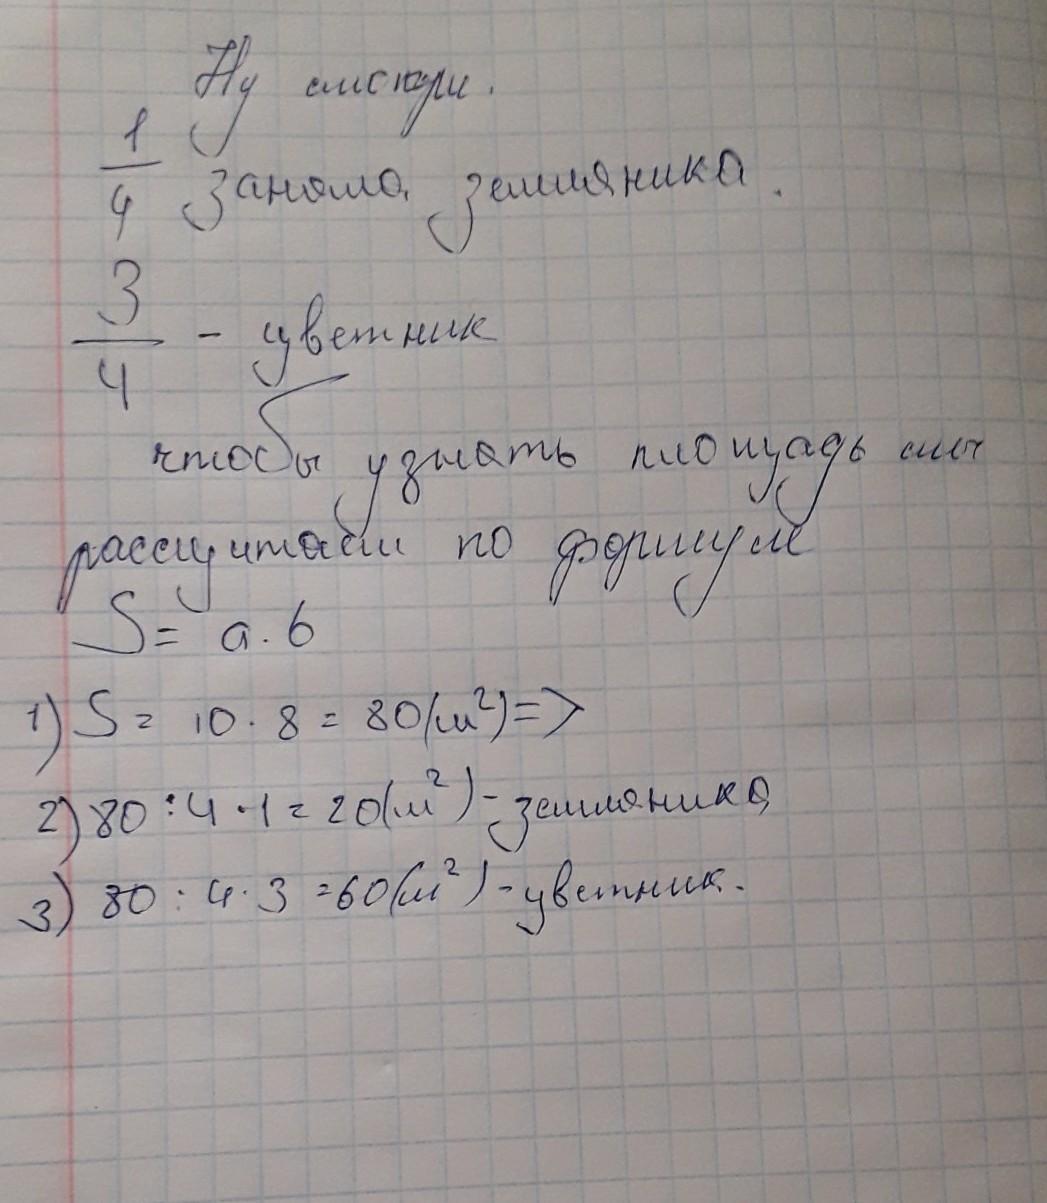 Ну смотри.
1/4 заняла земляника.
3/4 - цветник
чтобы узнать площадь мы
рассчитаем по формуле
S = a · b
1) S = 10 · 8 = 80(м²) =>
2) 80 : 4 · 1 = 20(м²) - земляника
3) 80 : 4 · 3 = 60(м²) - цветник.